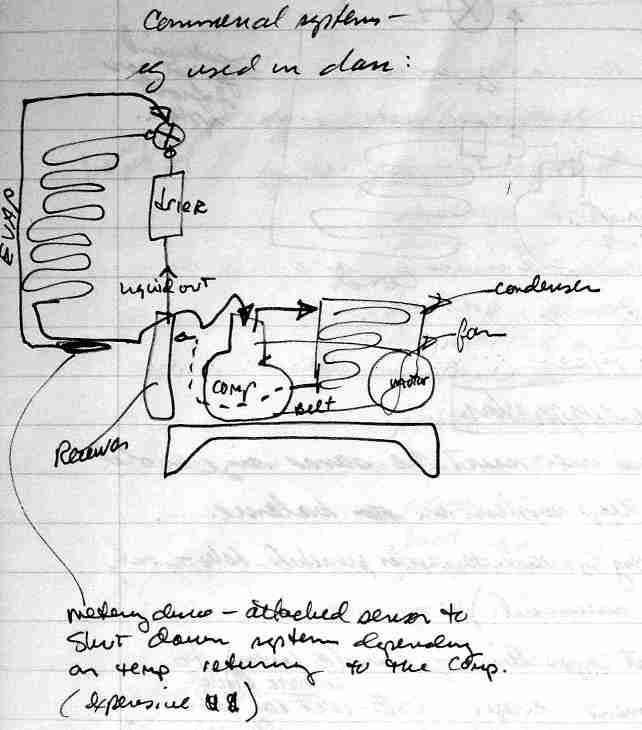 Commercial systems -
eg used in class:
EVAP
drier
liquid out
condenser
fan
comp
motor
Belt
Receiver
metering device - attached sensor to
Shut down system depending
on temp returning to the comp.
(expensive $$)